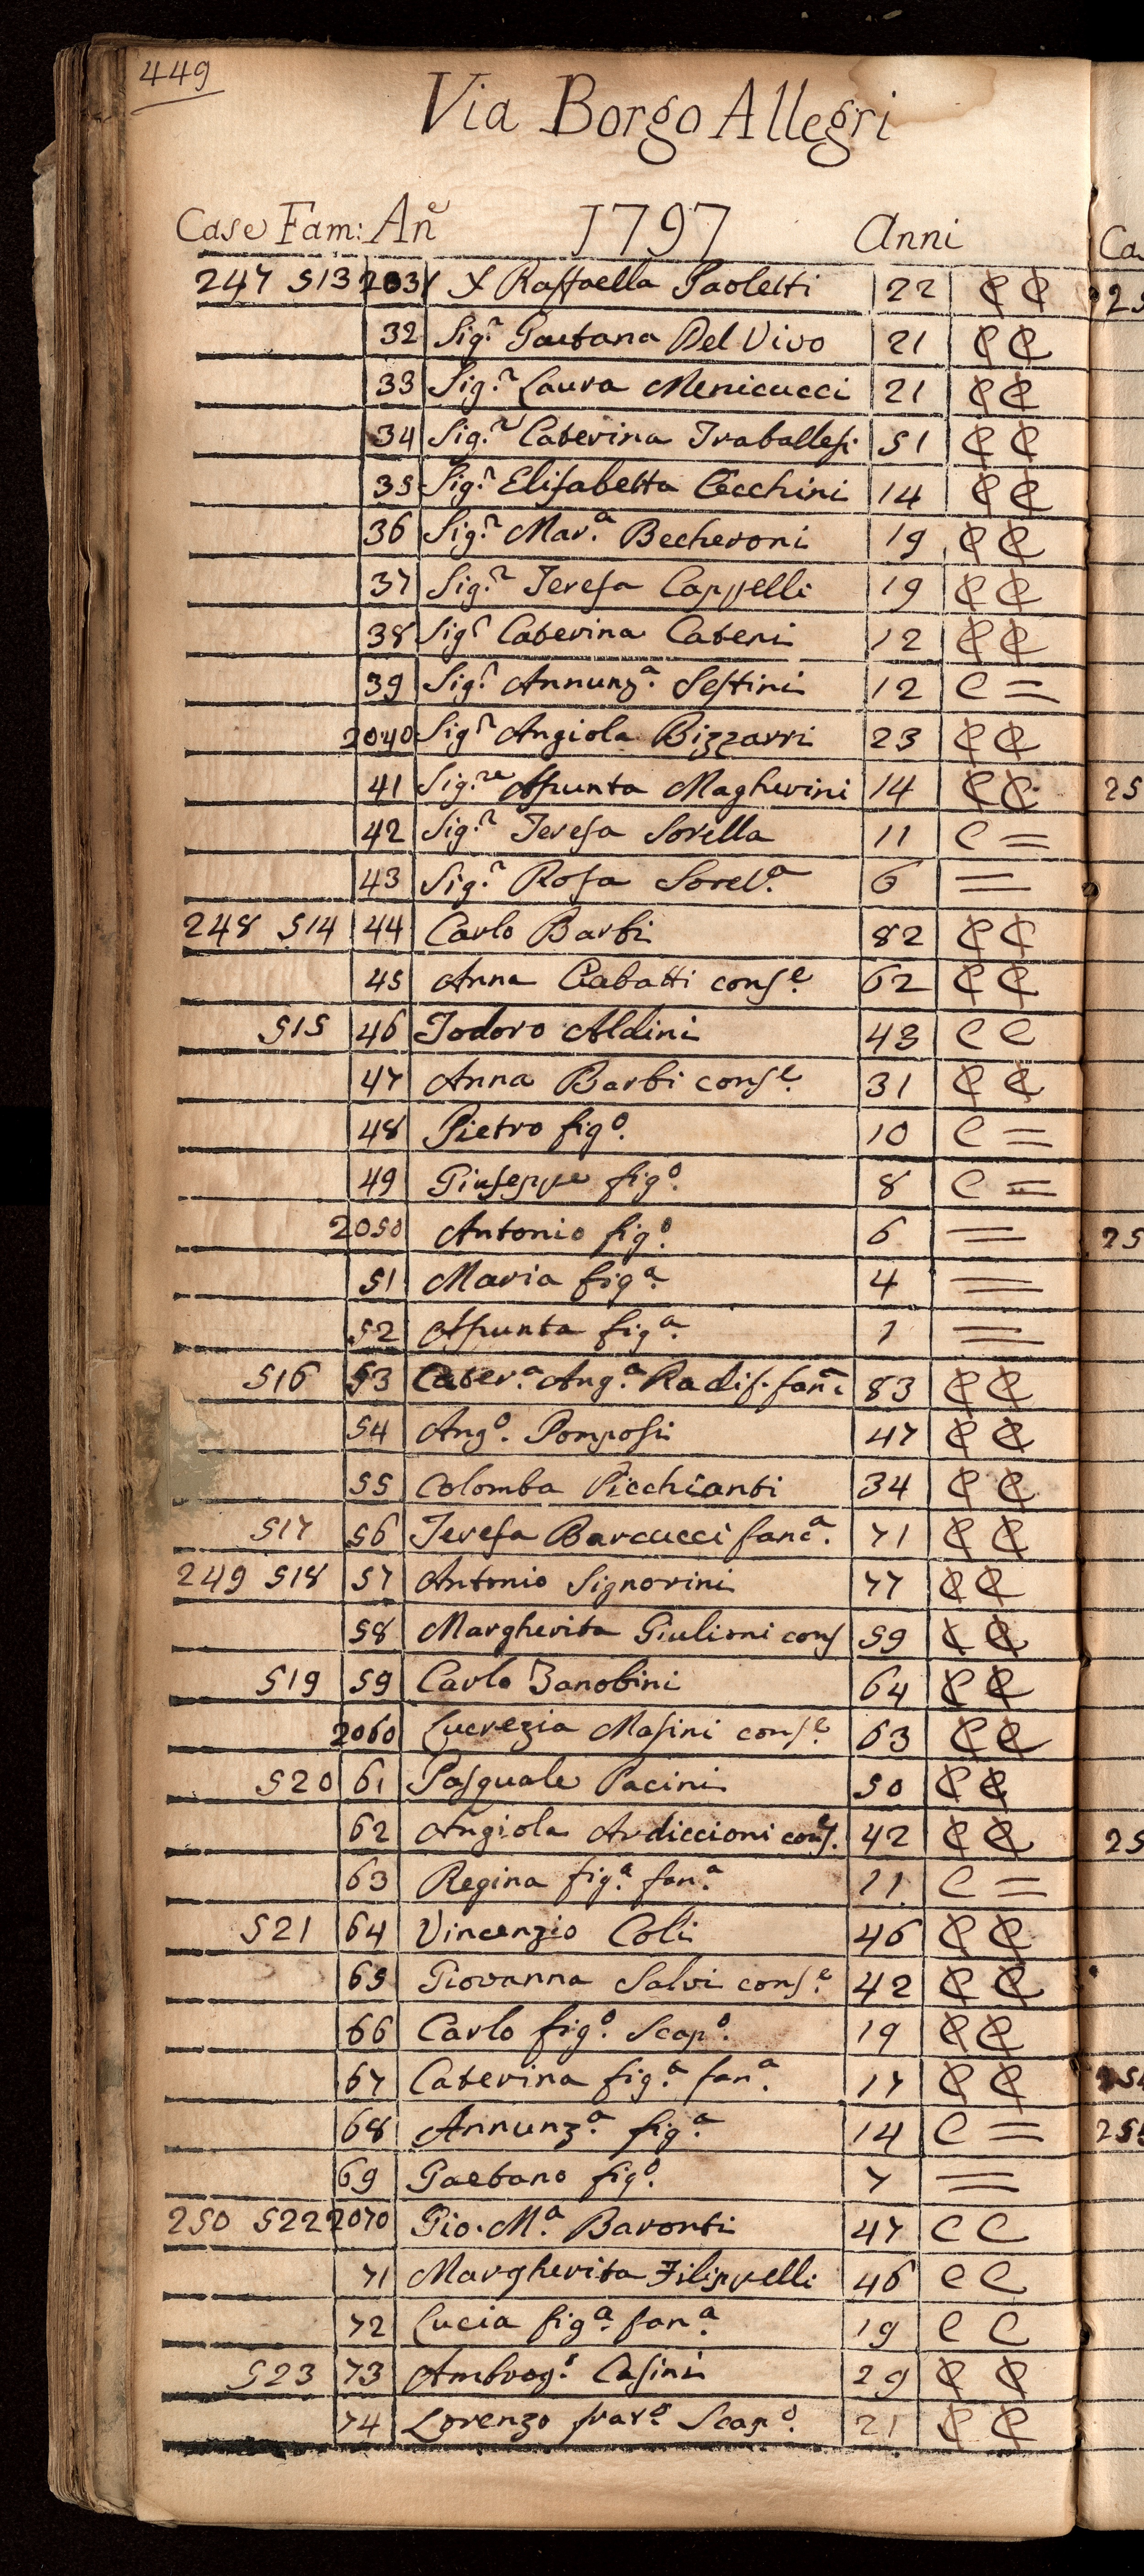 449
Via Borgo Allegri
Case Fam: Ane 1797 Anni
247 513 2031 X Raffaella Paoletti 22 C C
32 Sig.a Gaetana Del Vivo 21 C C
33 Sig.a Laura Menicucci 21 C C
34 Sig.a Caterina Traballesi 51 C C
35 Sig.a Elisabetta Cecchini 14 C C
36 Sig.a Mar.a Becheroni 19 C C
37 Sig.a Teresa Cappelli 19 C C
38 Sig.a Caterina Cateni 12 C C
39 Sig.a Annunz.a Sestini 12 C =
2040 Sig.a Angiola Bizzarri 23 C C
41 Sig.re Assunta Magherini 14 C C
42 Sig.a Teresa Sorella 11 C =
43 Sig.a Rosa Sorel.a 6 =
248 514 44 Carlo Barbi 82 C C
45 Anna Ciabatti cons.e 62 C C
515 46 Todoro Aldini 43 C C
47 Anna Barbi cons.e 31 C C
48 Pietro fig.o 10 C =
49 Giuseppe fig.o 8 C =
2050 Antonio fig.o 6 =
51 Maria fig.a 4 =
52 Assunta fig.a 1 =
516 53 Cater.a Ang.a Radis. fan.a 83 C C
54 Ang.o Pomposi 47 C C
55 Colomba Picchianti 34 C C
517 56 Teresa Barcucci fanc.a 71 C C
249 518 57 Antonio Signorini 77 C C
58 Margherita Giulioni cons 59 C C
519 59 Carlo Zanobini 64 C C
2060 Lucrezia Masini cons.e 63 C C
520 61 Pasquale Pacini 50 C C
62 Angiola Ardiccioni cons. 42 C C
63 Regina fig.a fan.a 11 C =
521 64 Vincenzio Coli 46 C C
65 Giovanna Salvi cons.e 42 C C
66 Carlo fig.o Scap.o 19 C C
67 Caterina fig.a fan.a 17 C C
68 Annunz.a fig.a 14 C =
69 Gaetano fig.o 7 =
250 522 2070 Gio. M.a Baronti 47 C C
71 Margherita Filippelli 46 C C
72 Lucia fig.a fan.a 19 C C
523 73 Ambrog.o Casini 29 C C
74 Lorenzo frat.o Scap.o 21 C C